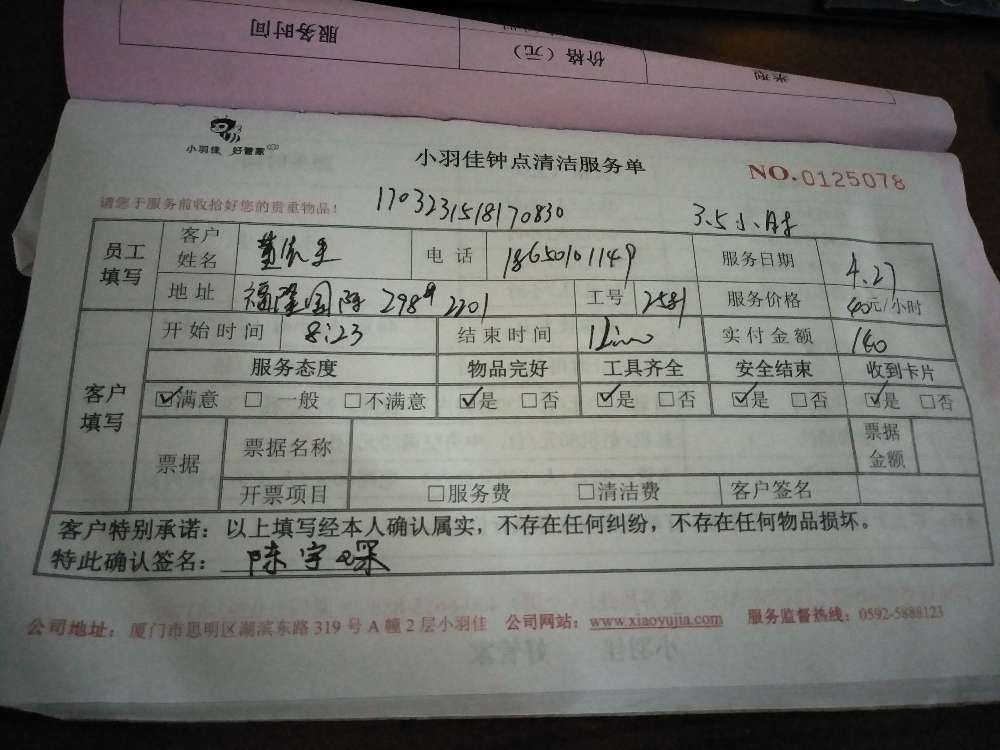 服务时间
价格（元）
类型
小羽佳 好管家
小羽佳钟点清洁服务单
NO.0125078
请您于服务前收拾好您的贵重物品！
1703231518170830
3.5小时
员工填写
客户姓名
电话 18650101149
服务日期 4.27
地址 福隆国际 298# 2201
工号 2581
服务价格 40元/小时
客户填写
开始时间 8:23
结束时间
实付金额 160
服务态度 物品完好 工具齐全 安全结束 收到卡片
☑满意 □一般 □不满意 ☑是 □否 ☑是 □否 ☑是 □否 ☑是 □否
票据 票据名称 票据金额
开票项目 □服务费 □清洁费 客户签名
客户特别承诺：以上填写经本人确认属实，不存在任何纠纷，不存在任何物品损坏。
特此确认签名：陈宇琛
公司地址：厦门市思明区湖滨东路 319 号 A 幢 2 层小羽佳 公司网站：www.xiaoyujia.com 服务监督热线：0592-5888123
小羽佳 好管家